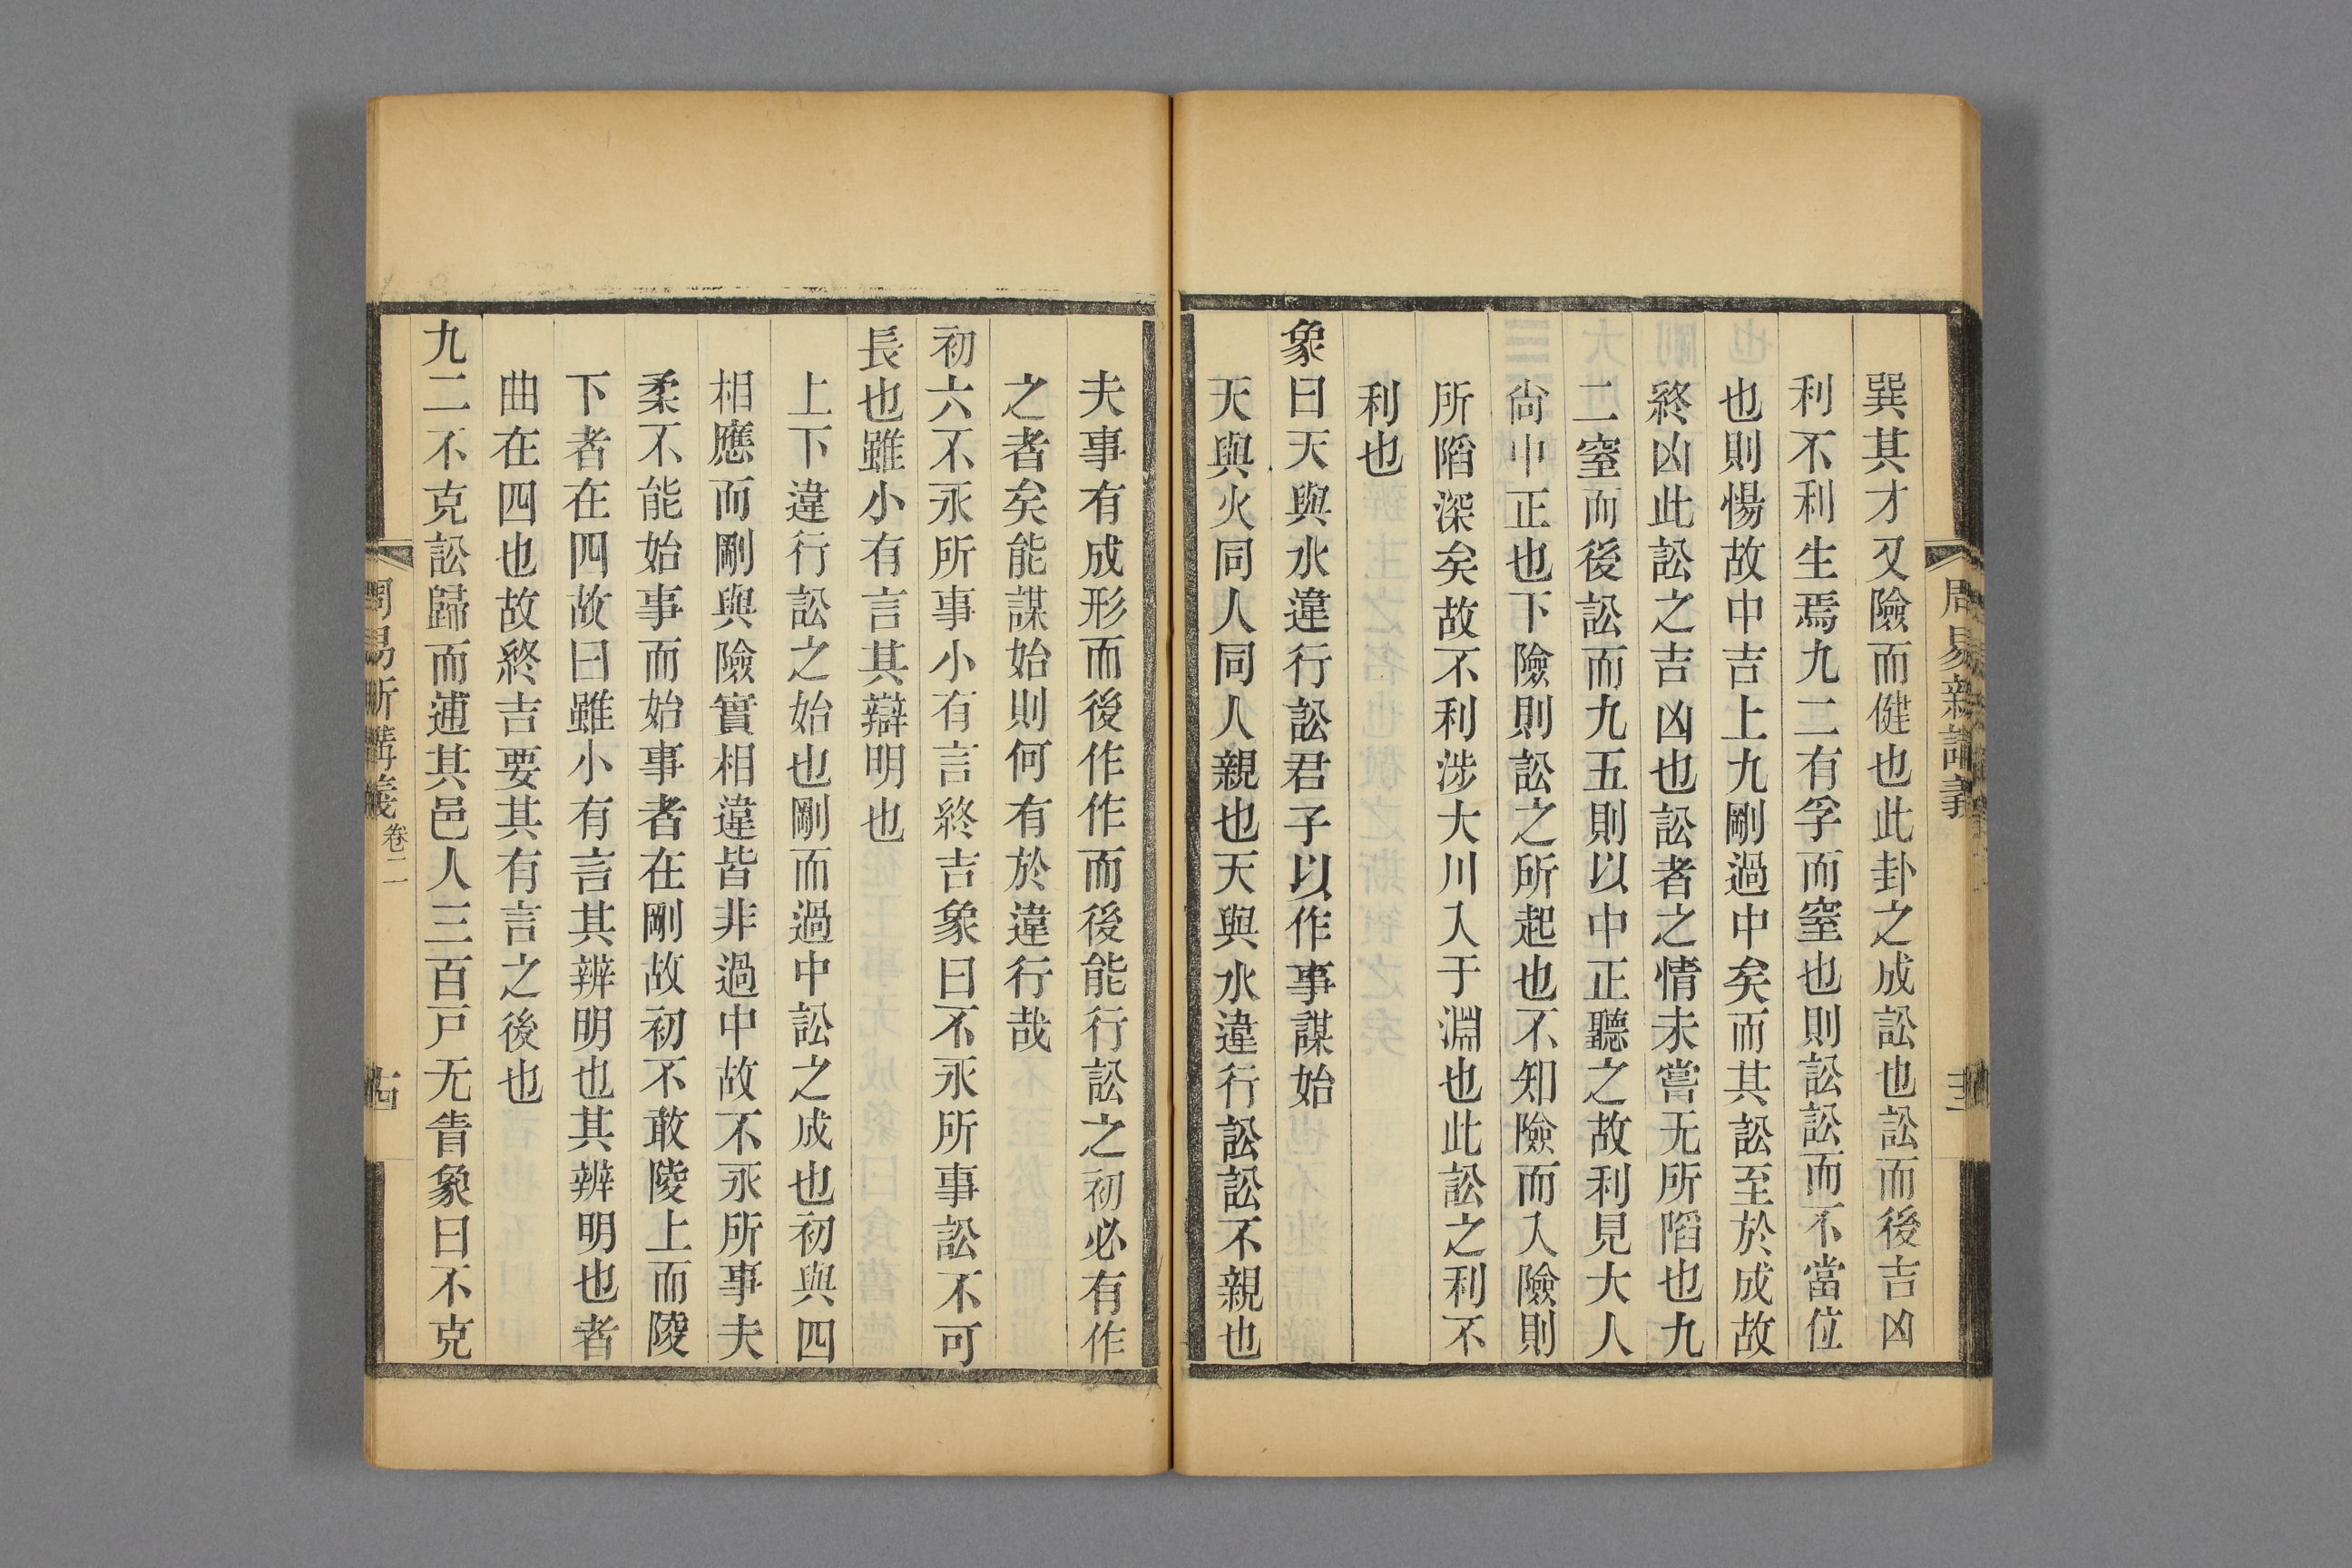 周易新講義
巽其才又險而健也此卦之成訟也訟而後吉凶
利不利生焉九二有孚而窒也則訟訟而不當位
也則惕故中吉上九剛過中矣而其訟至於成故
終凶此訟之吉凶也訟者之情未嘗无所陷也九
二窒而後訟而九五則以中正聽之故利見大人
尙中正也下險則訟之所起也不知險而入險則
所陷深矣故不利涉大川入于淵也此訟之利不
利也
象曰天與水違行訟君子以作事謀始
天與火同人同人親也天與水違行訟訟不親也
夫事有成形而後作作而後能行訟之初必有作
之者矣能謀始則何有於違行哉
初六不永所事小有言終吉象曰不永所事訟不可
長也雖小有言其辯明也
上下違行訟之始也剛而過中訟之成也初與四
相應而剛與險實相違皆非過中故不永所事夫
柔不能始事而始事者在剛故初不敢陵上而陵
下者在四故曰雖小有言其辨明也其辨明也者
曲在四也故終吉要其有言之後也
九二不克訟歸而逋其邑人三百戸无眚象曰不克
周易新講義
卷二
十四